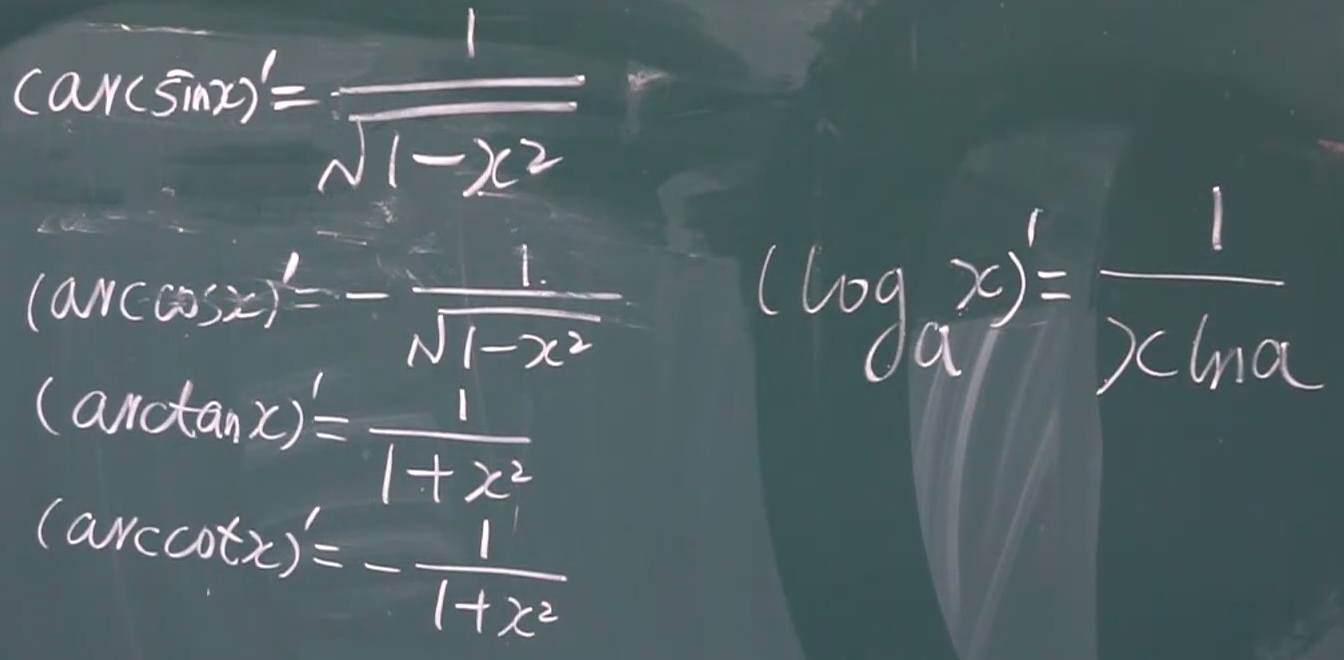 (arcsinx)' = 1/√(1-x²)
(arccosx)' = - 1/√(1-x²)
(arctanx)' = 1/(1+x²)
(arccotx)' = - 1/(1+x²)
(logₐx)' = 1/(x lna)